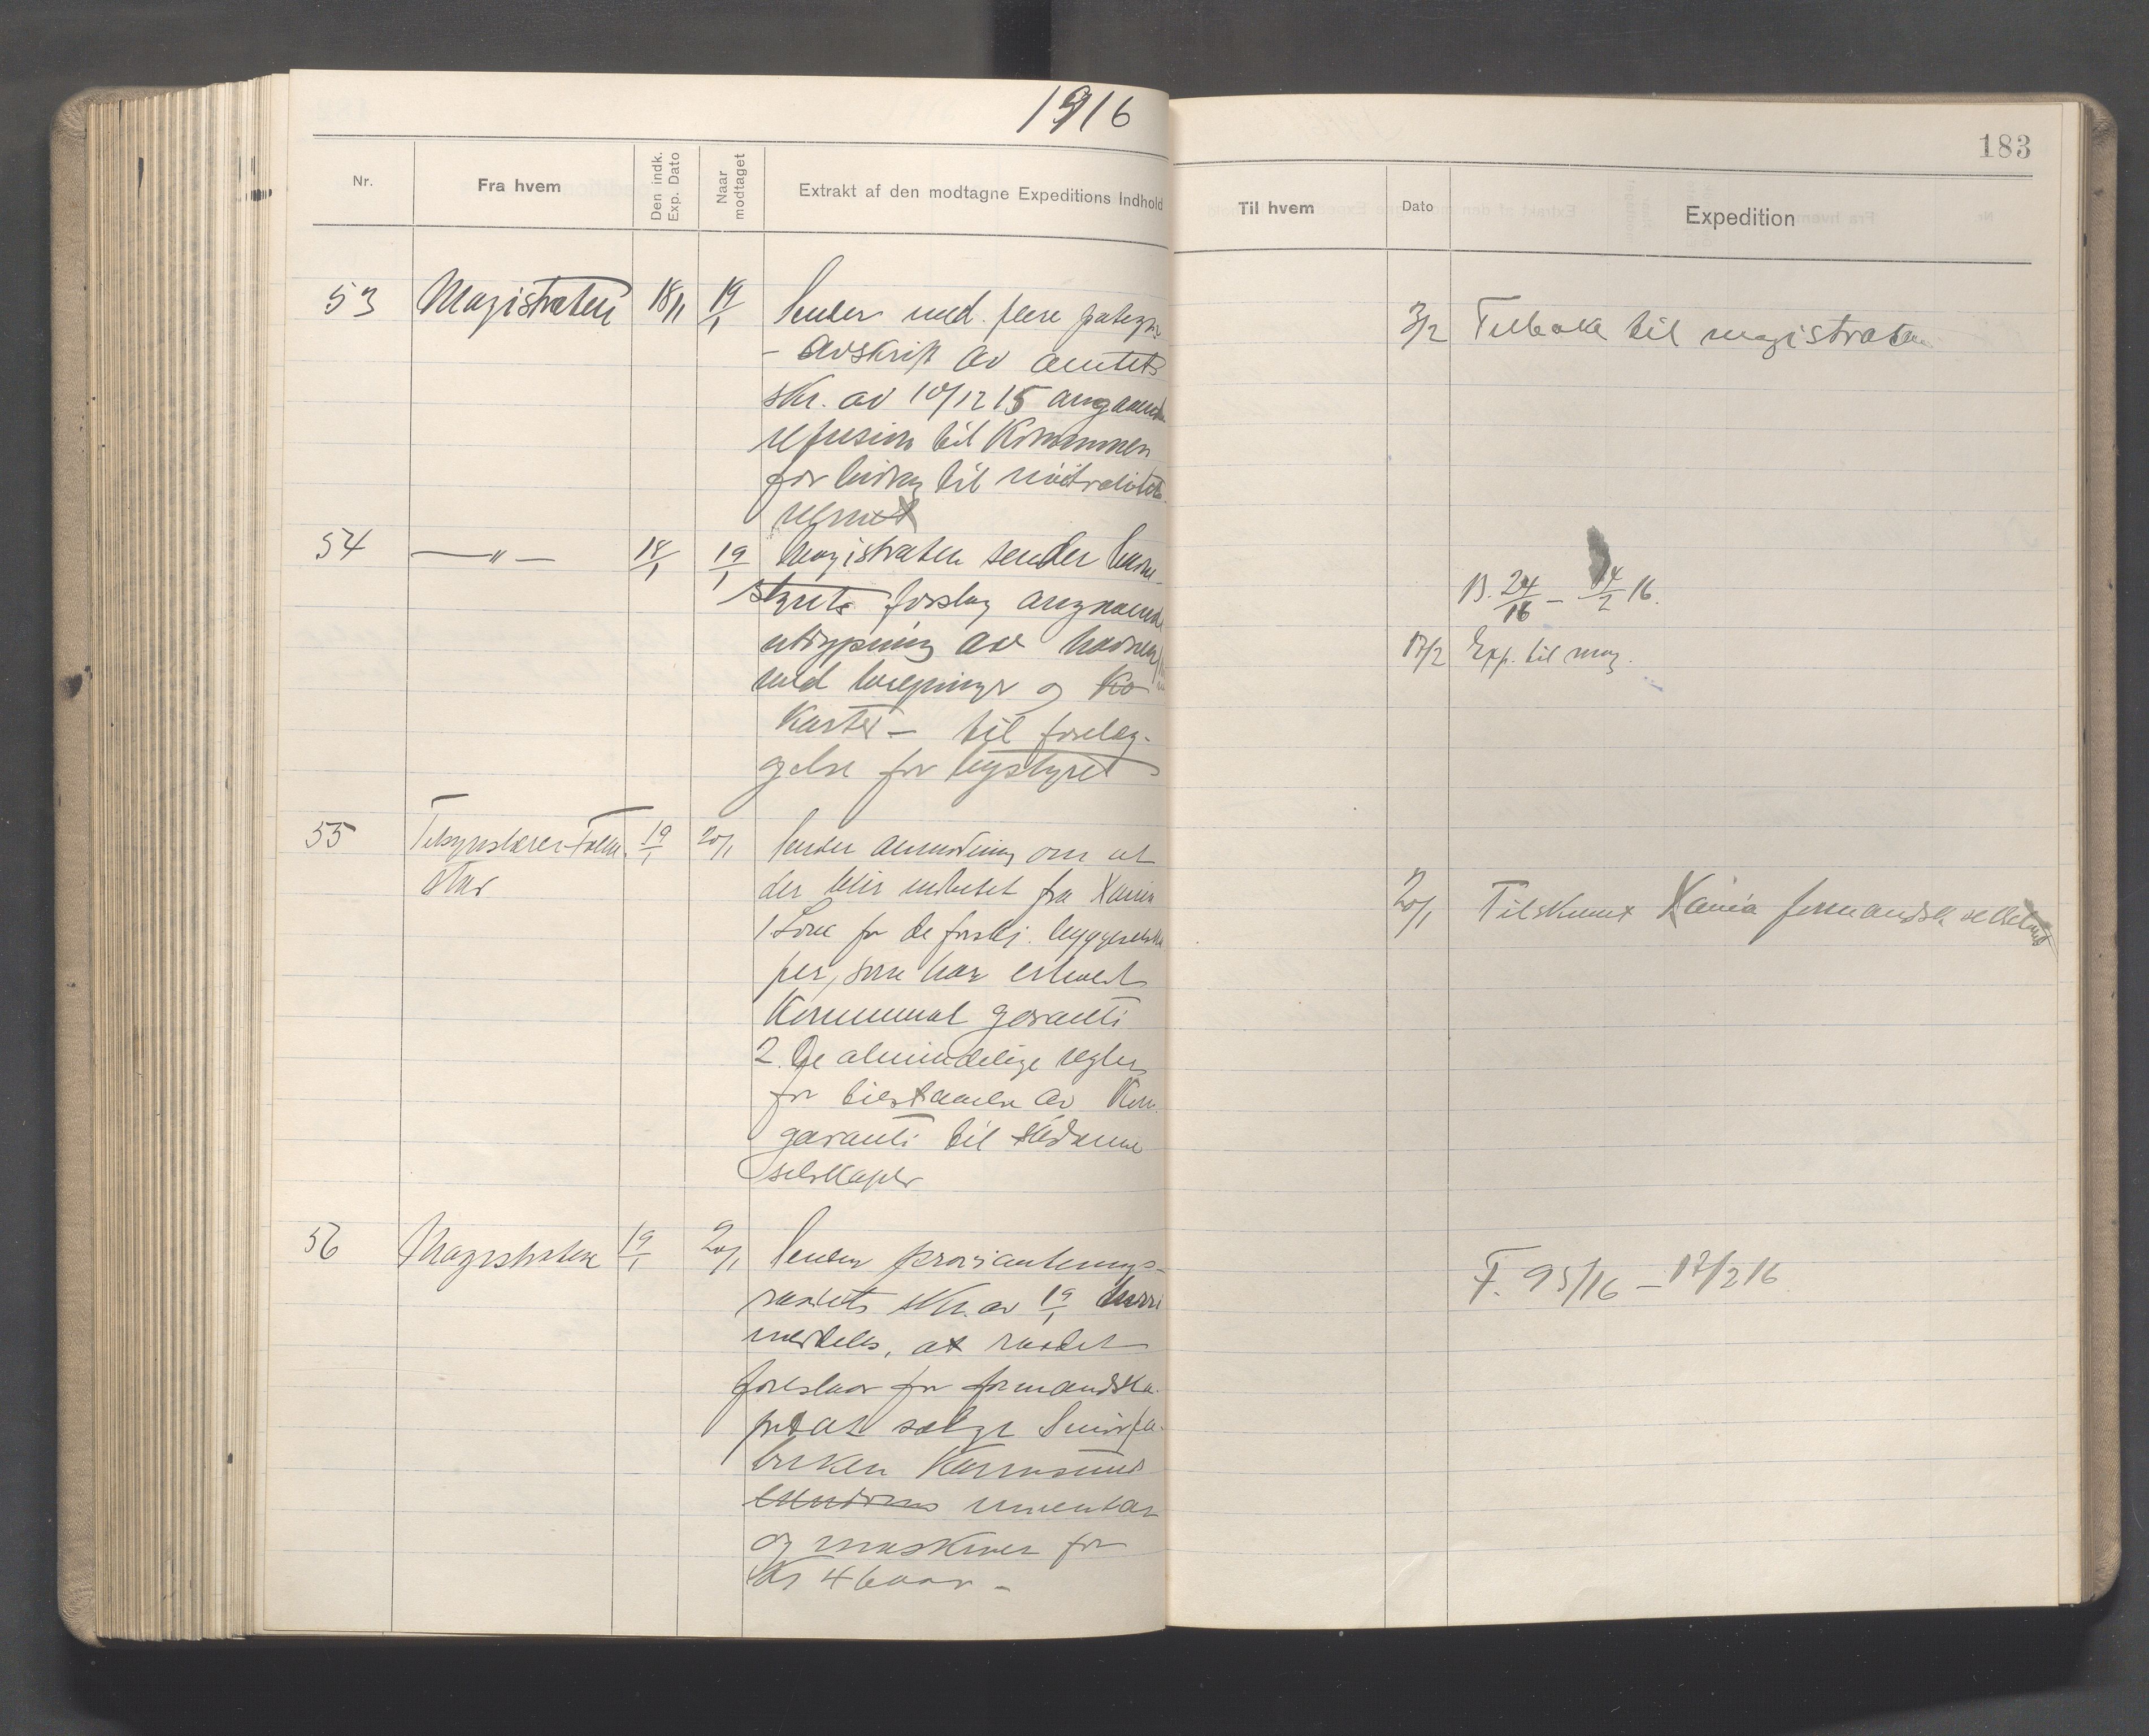 1916
183
Nr.
Fra hvem
Den indk. Exp. Dato
Naar modtaget
Extrakt af den modtagne Expeditions Indhold
Til hvem
Dato
Expedition
53 Magistraten 18/1 19/1 Sender med flere
- Avskrift av amtets
skr. av 10/12 15 angaaende
refusion til Kommunen
for bidrag til nöitralitets
3/2 Tilbake til magistraten
54 —"— 18/1 19/1 Magistraten sender havne-
styrets forslag angaaende
utdypning av havnen
med tegninger og Ko
Karter — til forelæg-
gelse for bystyret
B. 24/16 — 14/2 16.
17/2 Exp. til mag.
55 19/1 20/1 Sender anmodning om at
der blir utbetet fra Xania
1. Love for de forskj. byggeselska
per, som har erholdt
Kommunal garanti
2. De almindelige regler
for tilstaaelse av Kom.
garanti til sådanne
selskaper
20/1 Tilskrevet Xania formandsk
56 Magistraten 19/1 20/1 Sender provianterings-
raadets skr. av 19/1 hvori
meddeles, at raadet
foreslaar for formandska-
pet at sælge Smörfa-
briken Karmsund
inventar
og maskiner for
Kr 4600,-
F. 95/16 — 17/2 16